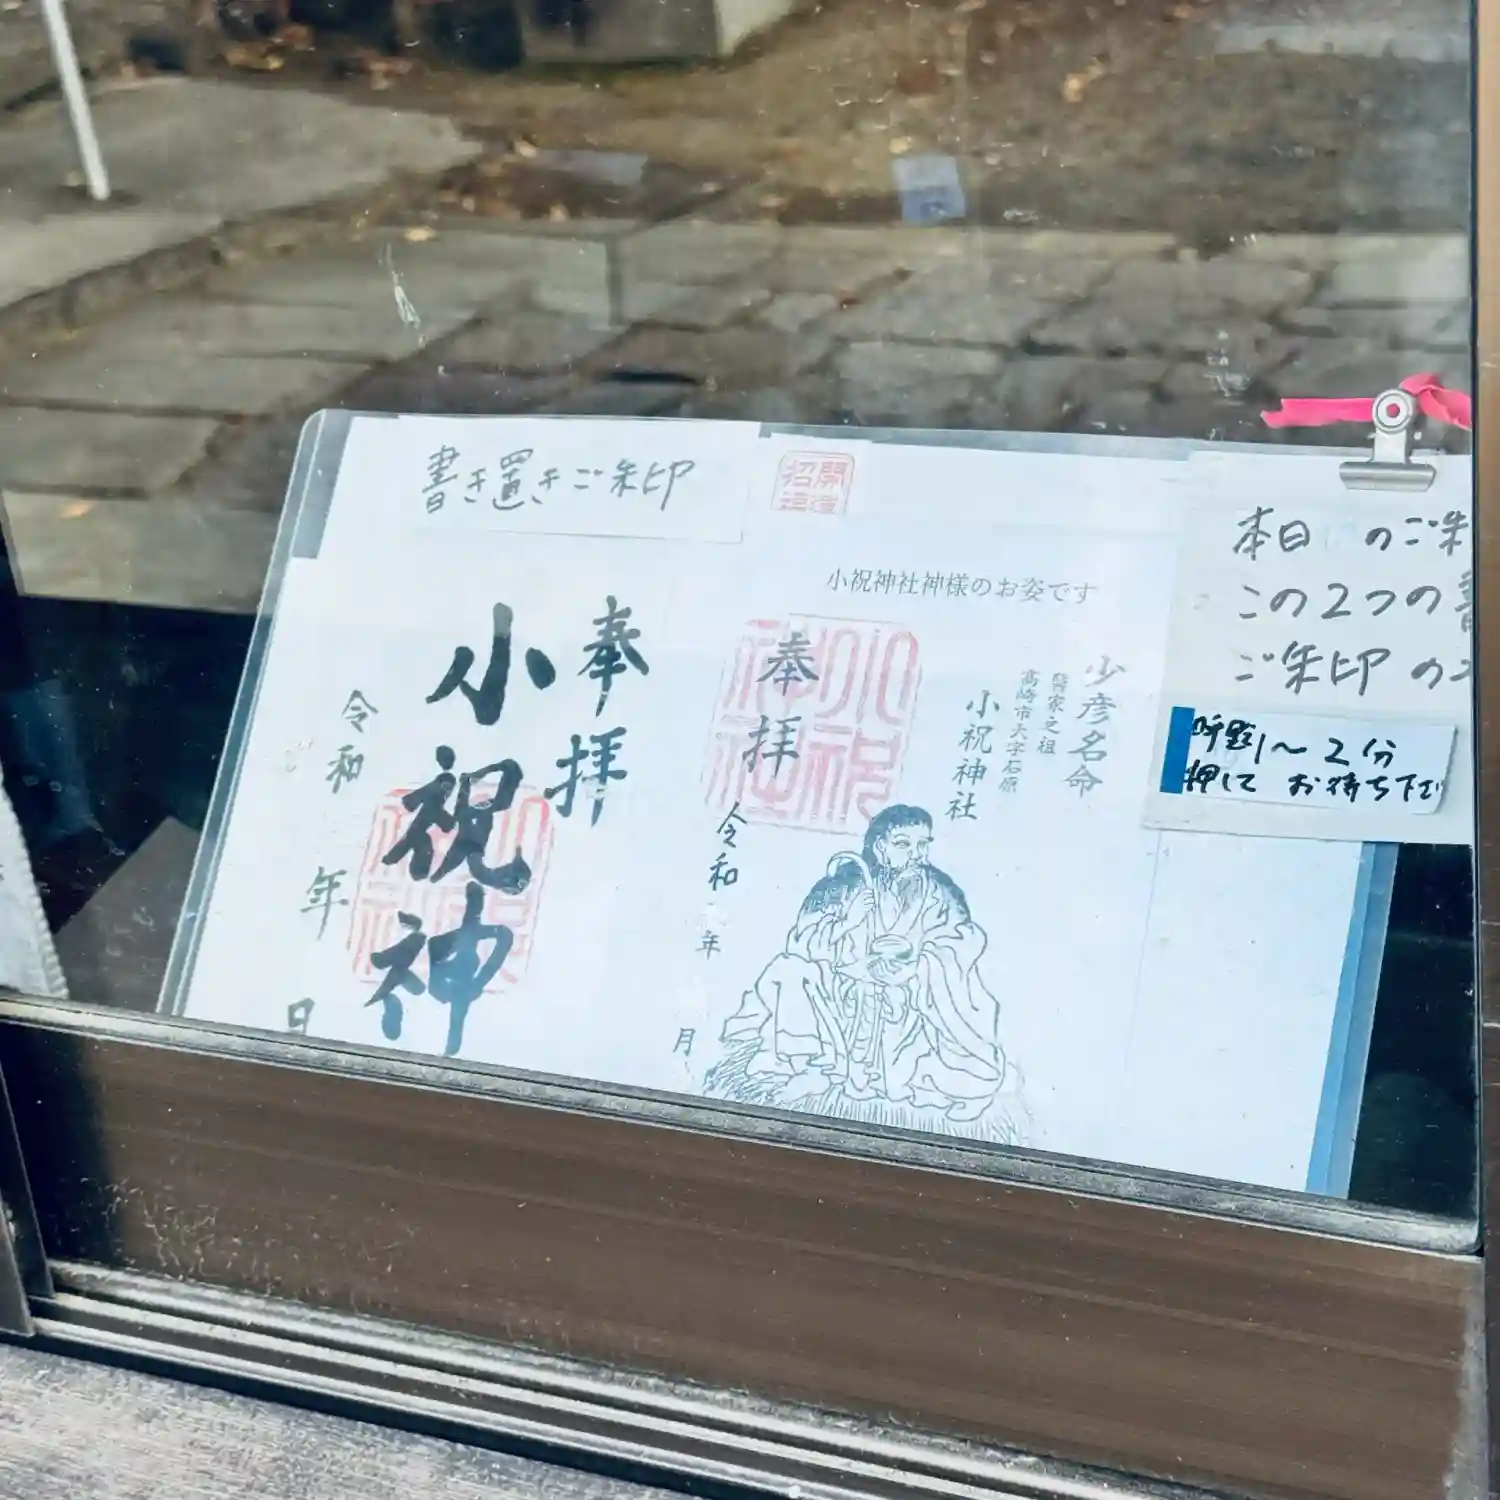 書き置きご朱印
奉拝
小祝神
令和
年
日
開運
招福
小祝神社神様のお姿です
少彦名命
醫家之祖
高崎市大字石原
小祝神社
奉拝
小祝神社
令和
年
月
本日 のご朱
この2つの書
ご朱印の
呼鈴1〜2分
押して お待ち下さ